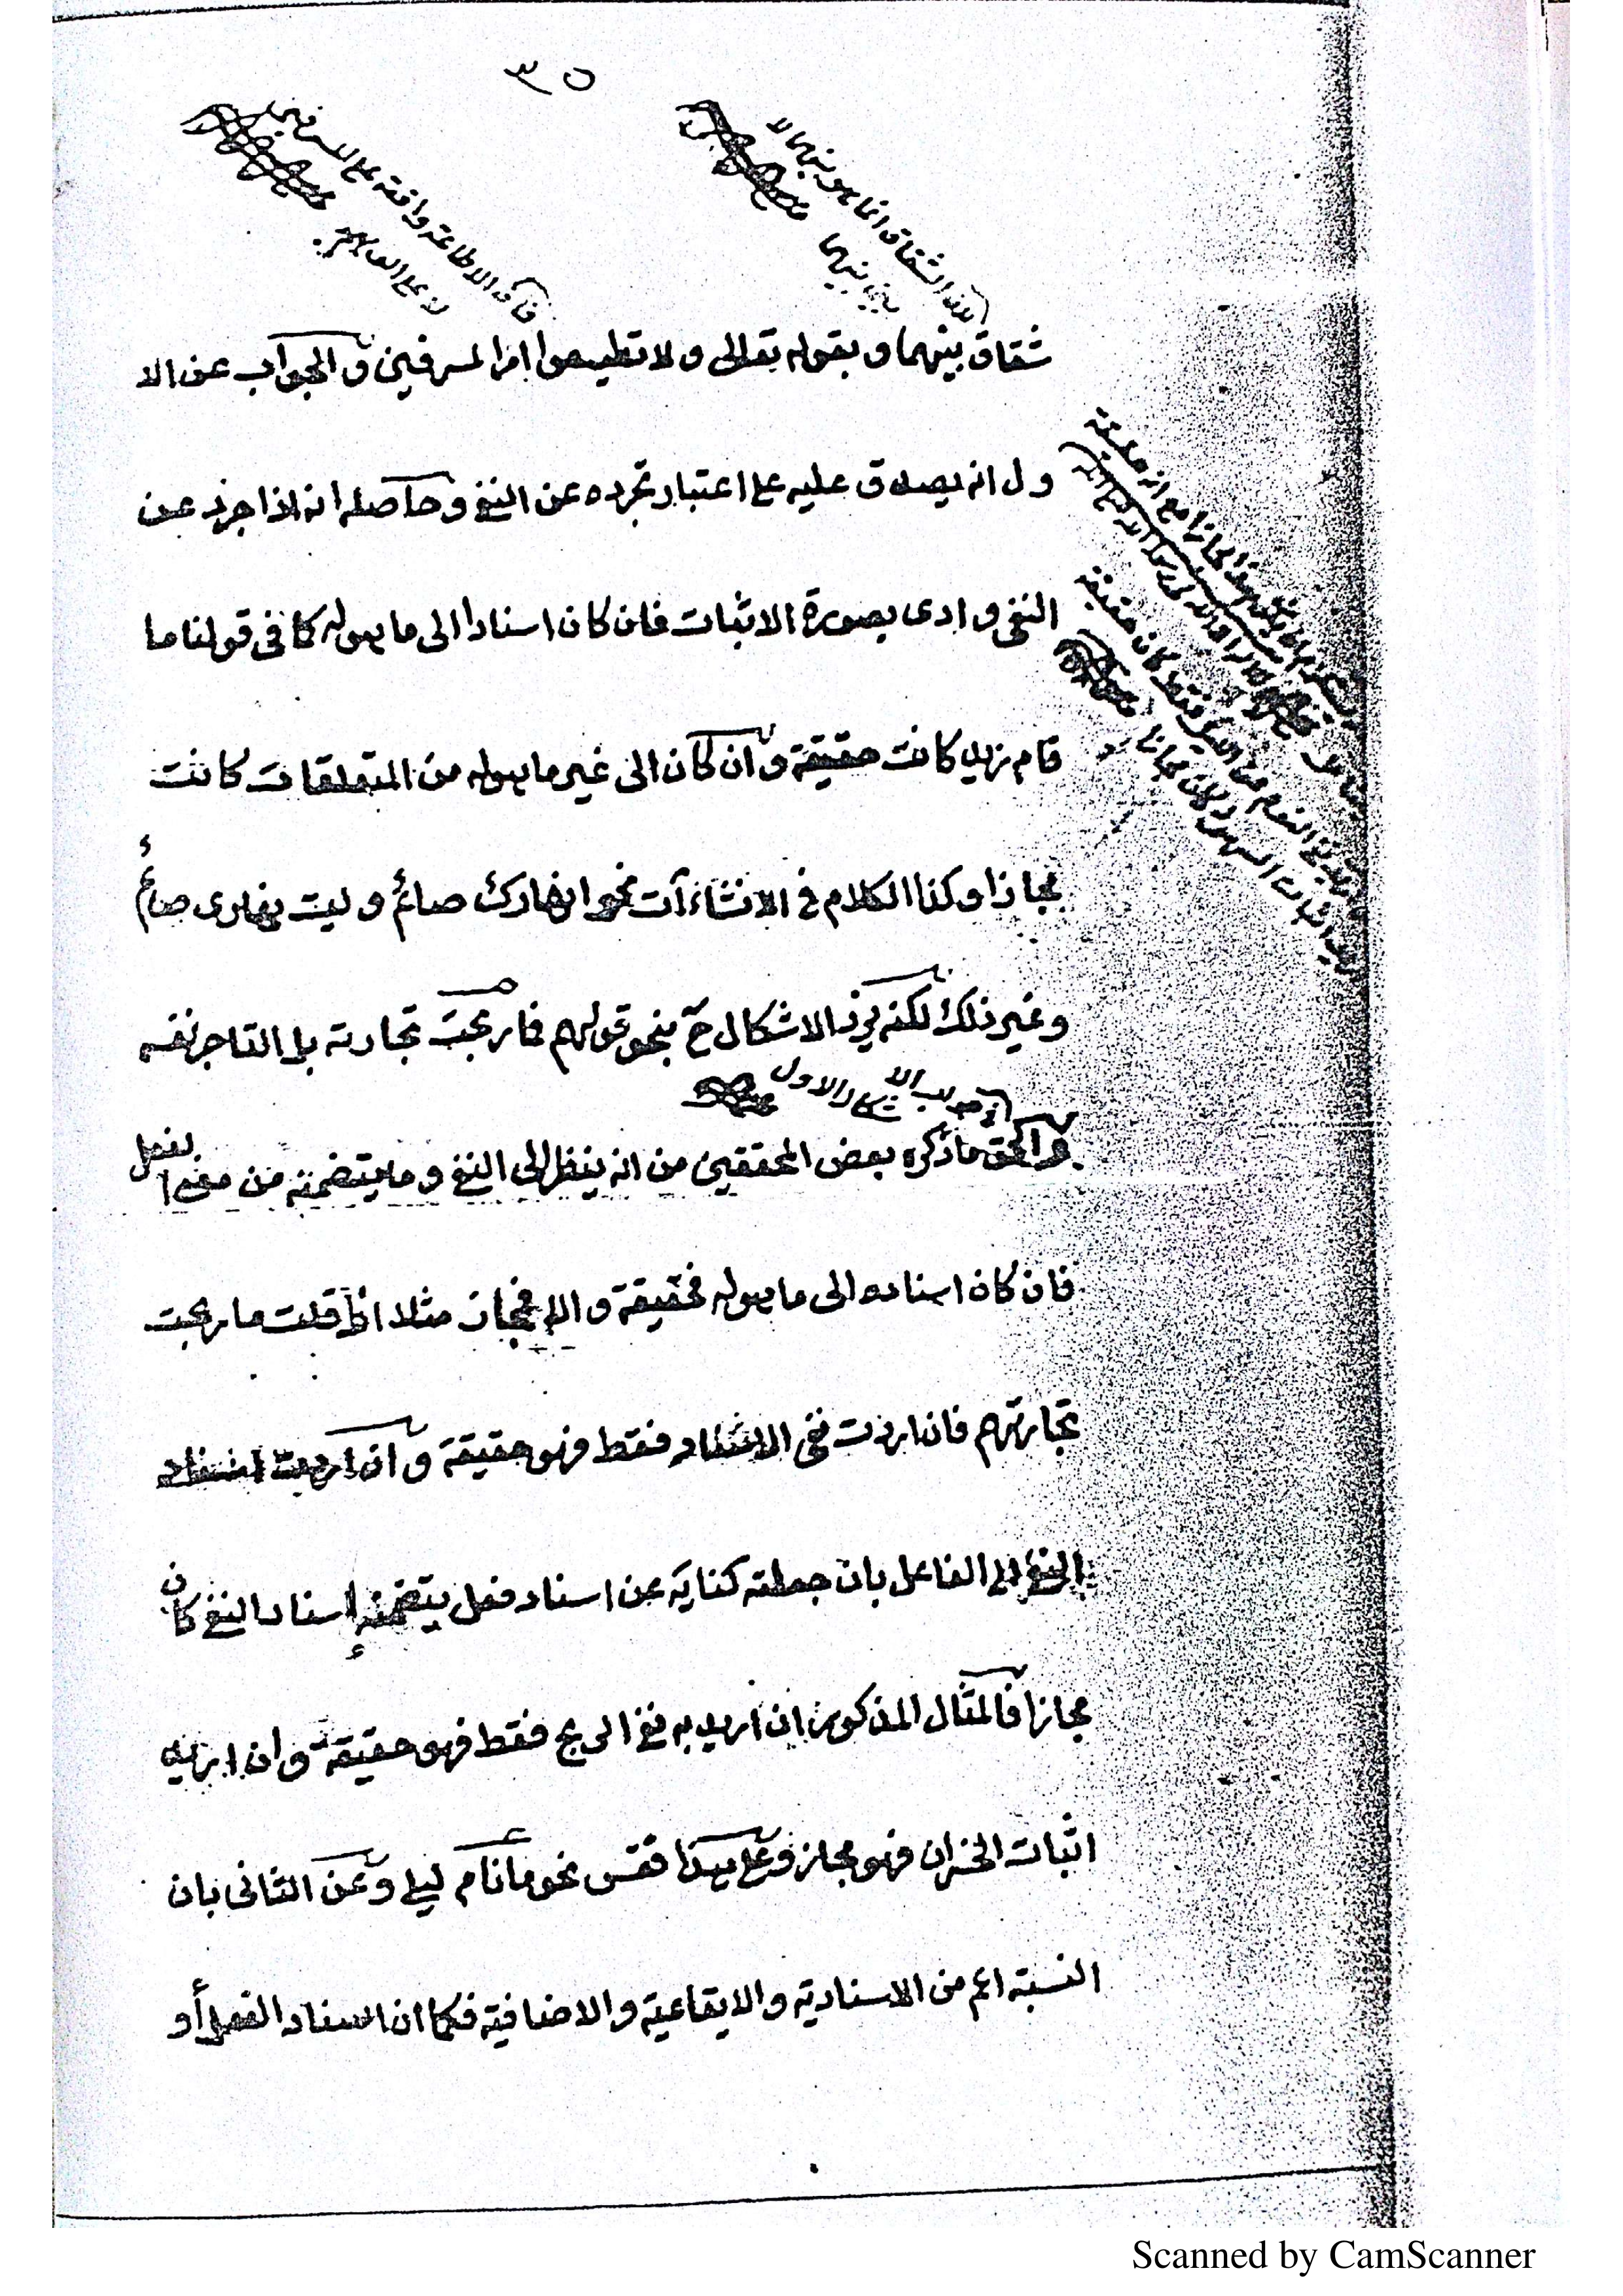 ٣٥
لان الشقاق انما هو بينهما لا
بين بينهما
فان الاطاعة واقعة على المسرفين
لا على امر
شقاق بينهما و بقوله تعالى ولا تطيعوا امر المسرفين و الجواب عن الا
ول انه يصدق عليه على اعتبار تجرده عن النفي و حاصله انه اذا جرد عن
النفي و ادى بصورة الاثبات فان كان اسنادا الى ما هو له كما في قولنا ما
قام زيد كانت حقيقة و ان كان الى غير ما هو له من المتعلقات كانت
مجازا وكذا الكلام في الانشاءآت نحو انهارك صائم و ليت نهارى صائم
وغير ذلك لكنه يرد الاشكال ح بنحو قولهم فما ربحت تجارته بل التاجر نفسه
جواب الاشكال الاول
و الحق ما ذكره بعض المحققين من انه ينظر الى النفي و ما يتضمنه من معنى الفعل
فان كان اسناده الى ما هو له فحقيقة و الا فمجاز مثلا اذا قلت ما ربحت
تجارتهم فان اردت نفي الاسناد فقط فهو حقيقة و ان اردت اسناد
النفي الى الفاعل بان جعلته كناية عن اسناد فعل يتضمنه اسناد النفي كان
مجازا فالمثال المذكور ان اريد به نفي الربح فقط فهو حقيقة و ان اريد
اثبات الخسران فهو مجاز وعلى هذا فقس نحو ما نام ليلي و عن الثاني بان
النسبة اعم من الاسنادية والايقاعية والاضافية فكما ان اسناد الفعل أو
Scanned by CamScanner